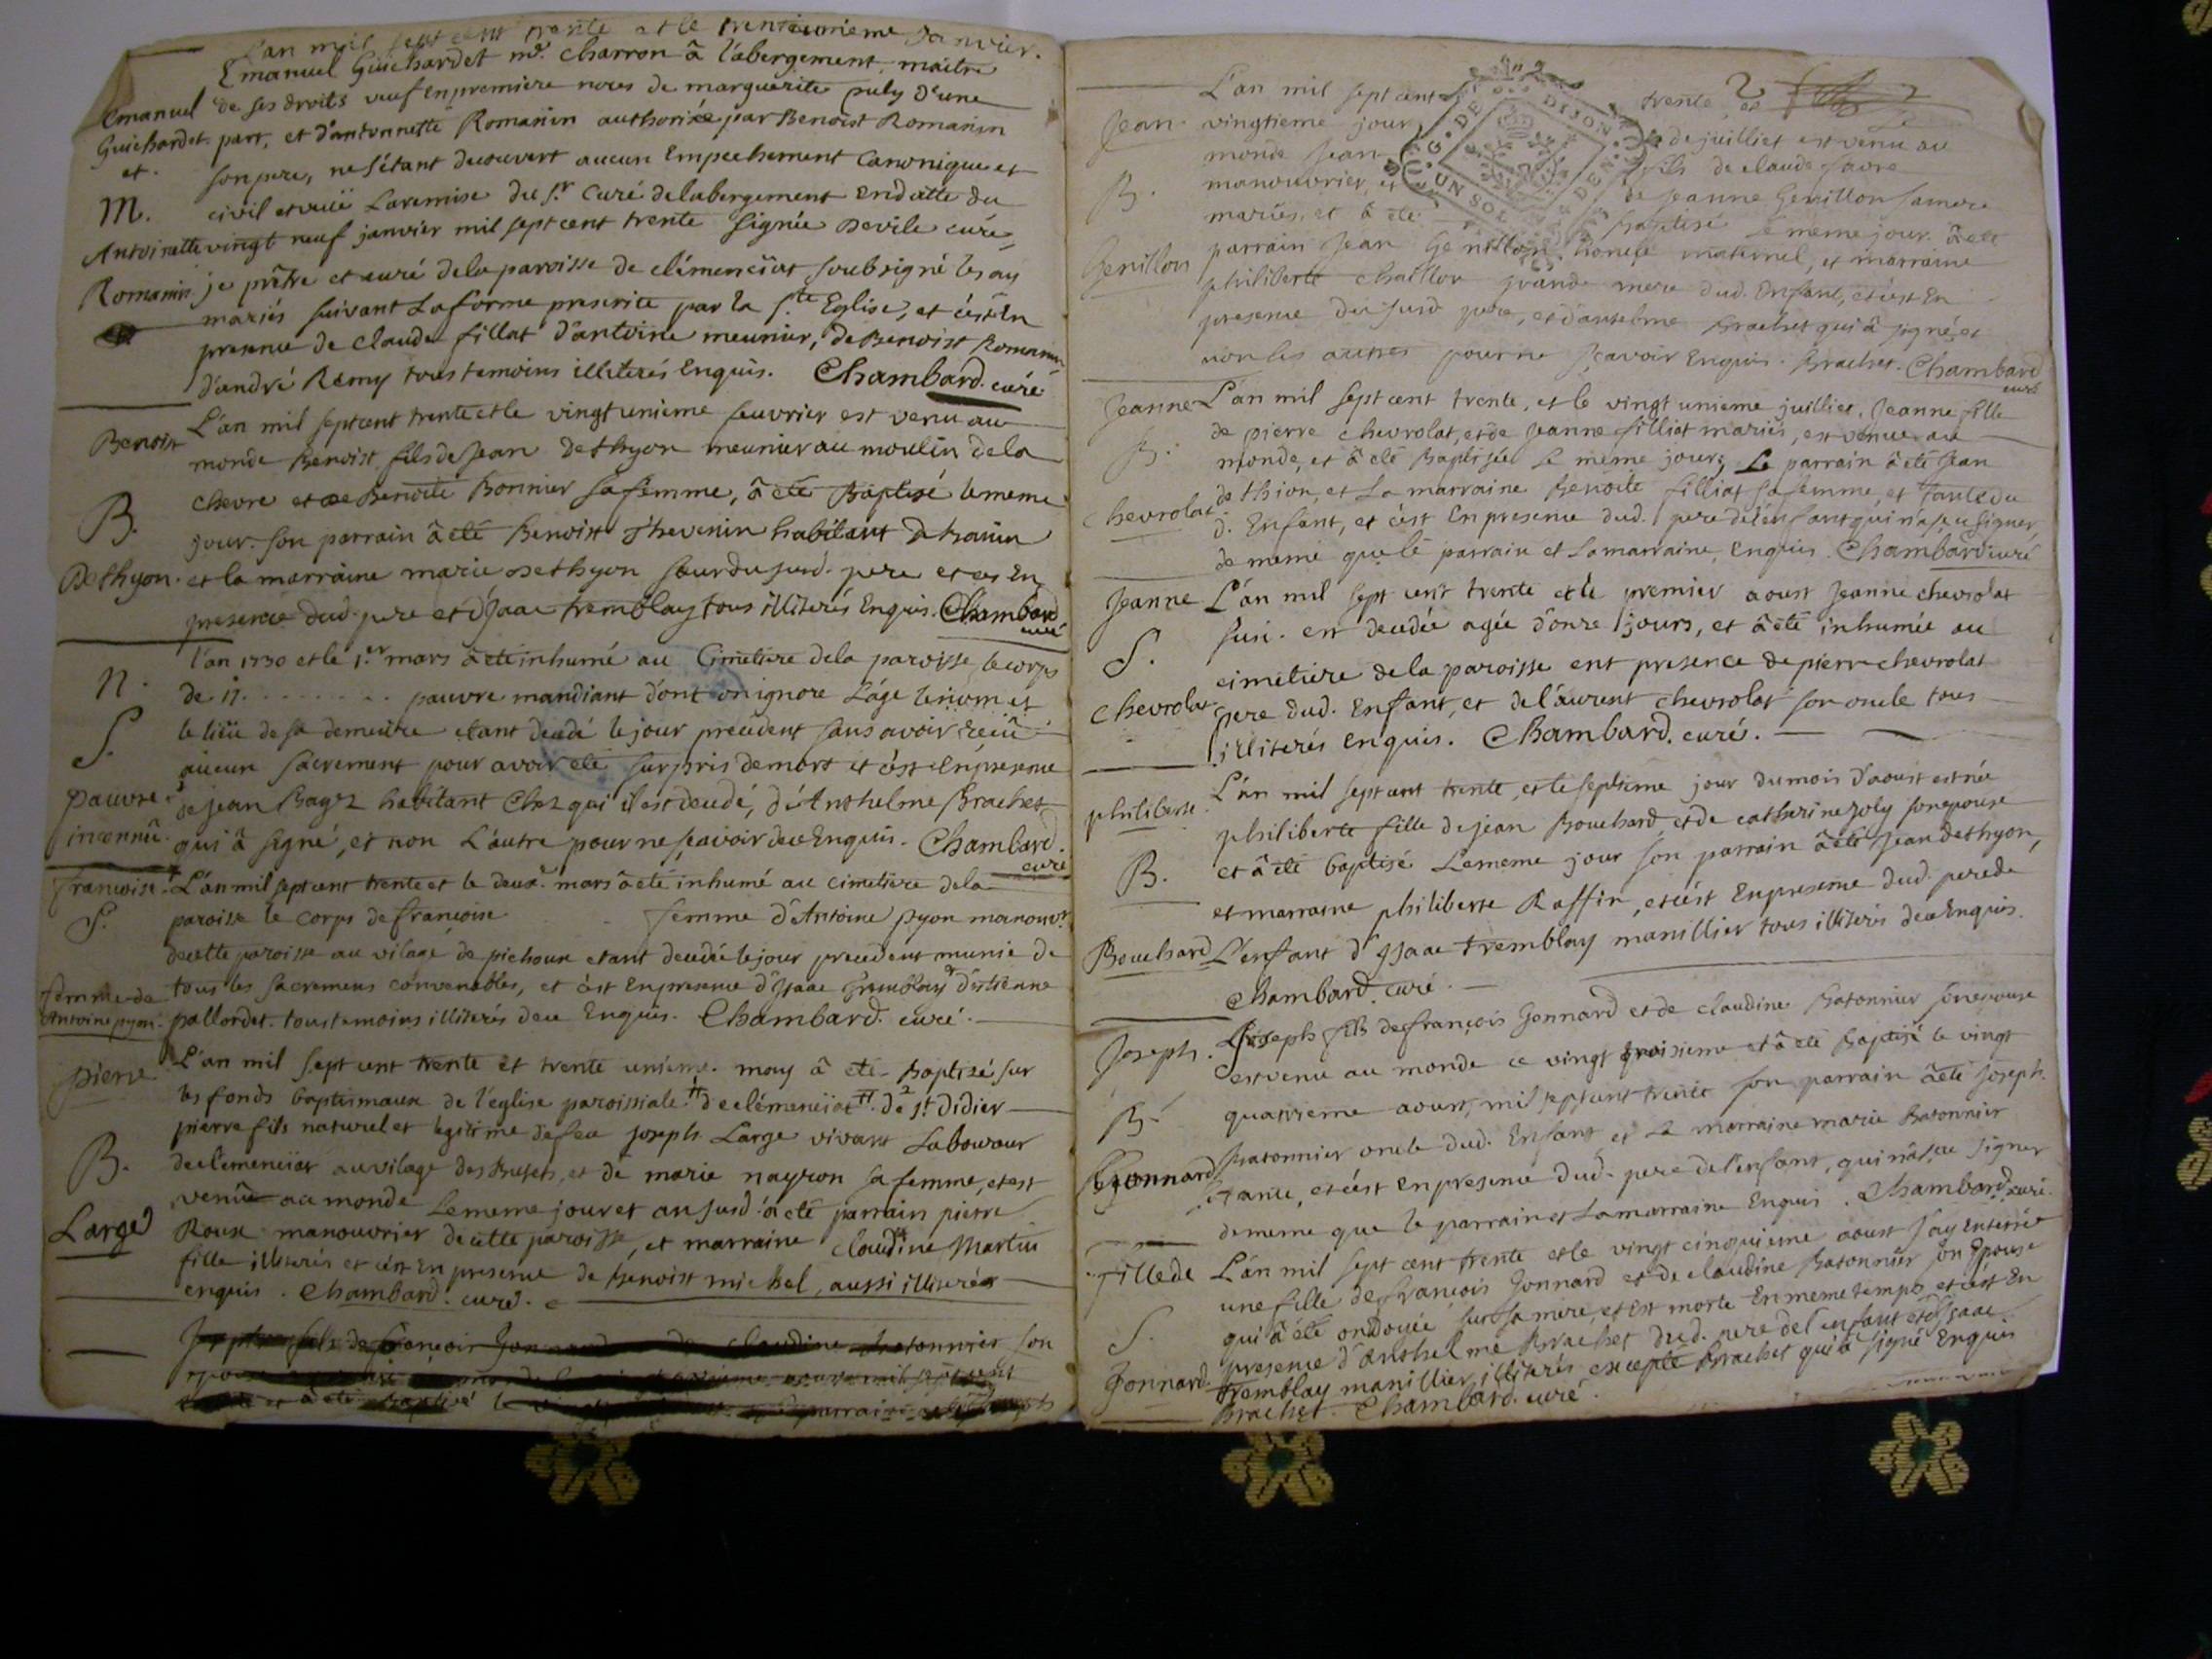 L'an mil sept cent trente et le trenteunieme Janvier.
Emanuel Guichardet md. charron à l'abergement, maitre
Emanuel de ses droits veuf en premiere noces de marguerite puly d'une
Guichardet part, et d'antonnette Romanin authorisée par Benoist Romanin
et son pere, ne s'étant decouvert aucun Empechement Canonique et
M. civil et veüe La remise du sr. Curé de labergement en datte du
Antoinette vingt neuf janvier mil sept cent trente signée Devile curé,
Romanin je prêtre et curé de la paroisse de clémenciat soubsigné les ay
mariés suivant La forme prescrite par la ste Eglise, et c'est En
presence de claude fillat d'antoine meunier, de Benoist Romanin
d'andré Remy tous temoins illiterés Enquis. Chambard. curé
Benoist L'an mil sept cent trente et le vingt unieme feuvrier est venu au
monde Benoist fils de Jean dethyon meunier au moulin de la
B. chevre et de Benoite Bonnier sa femme, â eté Baptisé le meme
jour. son parrain â eté Benoist Thevenin habitant
Dethyon. et la marraine marie Dethyon seur du susd. pere et en
presence dud. pere et d'Isaac tremblay tous illiterés Enquis. Chambard
curé
n. l'an 1730 et le 1er mars â eté inhumé au Cimetiere de la paroisse le corps
de n. . . . . . . . . pauvre mandiant d'ont on ignore L'áge le nom et
S. le lieu de sa demeure etant decedé le jour precedent sans avoir receü
aucun sacrement pour avoir eté surpris de mort et c'est en presence
pauvre de jean Bagez habitant Chez qui il est decedé, d'Anthelme Brachet
inconnû. qui â signé, et non L'autre pour ne sçavoir de ce Enquis. Chambard.
curé
francoise. L'an mil sept cent trente et le deux. mars â eté inhumé au cimetiere de la
S. paroisse le corps de francoise femme d'Antoine pyon manouvr.
de cette paroisse au vilage de pichoux etant decedée le jour precedent munie de
femme de tous les sacremens convenables, et c'est En presence d'Isaac tremblay d'estienne
Antoine pyon. pallordet. tous temoins illiterés de ce Enquis. Chambard. curé.
pierre L'an mil sept cent trente et trente unieme. may â eté Baptisé sur
les fonds baptismaux de l'eglise paroissiale de clémenciat de st Didier
pierre fils naturel et legitime de feu joseph Large vivant Laboureur
B. de clemenciat au vilage des et de marie nayron sa femme, et est
venû au monde Le meme jour et an susd. â eté parrain pierre
Large Roux manouvrier de cette paroisse, et marraine claudine Martin
fille illiterés et c'est En presence de benoist michel, aussi illiterés
enquis. Chambard. curé.
de francois claudine Batonnier son
2
L'an mil sept cent trente, et le
Jean vingtieme jour de juillier est venu au
monde Jean fils de claude favre
B. manouvrier, et de Jeanne Genillon sa mere
mariés, et â eté baptisé le meme jour. â eté
Genillon parrain Jean Genillon oncle maternel, et marraine
philiberte chaillor grande mere dud. Enfant, et c'est En
presence du susd pere, et d'anthelme Brachet qui â signé et
non les autres pour ne sçavoir Enquis. Brachet. Chambard
curé
G. DE DIJON
UN SOL DEN
Jeanne L'an mil sept cent trente, et le vingt unieme juillier, Jeanne fille
de pierre chevrolat, et de Jeanne filliat mariés, est venue au
B. monde, et â eté Baptisée le meme jour, Le parrain â eté Jean
chevrolat. de thion, et La marraine Benoite filliat sa femme, et tante du
d. Enfant, et c'est En presence dud. pere de l'enfant qui n'a sçeu signer,
de meme que le parrain et La marraine, Enquis. Chambard curé
Jeanne L'an mil sept cent trente et le premier aoust Jeanne chevrolat
S. susd. est decedée agée d'onze jours, et â eté inhumée au
cimetiere de la paroisse ent presence de pierre chevrolat
chevrolat pere dud. Enfant, et de l'aurent chevrolat son oncle tous
illiterés Enquis. Chambard. curé.
philiberte L'an mil sept cent trente, et le septieme jour du mois d'aoust est née
philiberte fille de jean Bouchard, et de catherine joly son epouse
B. et â eté baptisé Le meme jour son parrain â eté Jean dethyon,
et marraine philiberte Raffin, et c'est En presence dud. pere de
Bouchard L'enfant d'Isaac tremblay manillier tous illiterés de ce Enquis.
Chambard. curé.
Joseph. Joseph fils de françois Gonnard et de claudine Batonnier son epouse
est venu au monde ce vingt troisieme et â eté Baptisé le vingt
B. quatrieme aoust, mil sept cent trente son parrain â eté Joseph
Batonnier oncle dud. Enfant et La marraine marie Batonnier
Gonnard tante, et c'est en presence dud. pere de l'enfant, qui n'â sçeu signer
de meme que le parrain et La marraine Enquis. Chambard. curé.
fille de L'an mil sept cent trente et le vingt cinquieme aoust j'ay Enterrée
une fille de francois Gonnard et de claudine Batonnier son Epouse
S. qui â été ondoyée sur sa mere, et est morte En meme temps, et c'est En
presence d'Anthelme Brachet dud. pere de l'enfant et d'Isaac
Gonnard. tremblay manillier, illiterés excepté Brachet qui â signé Enquis
Brachet. Chambard. curé.